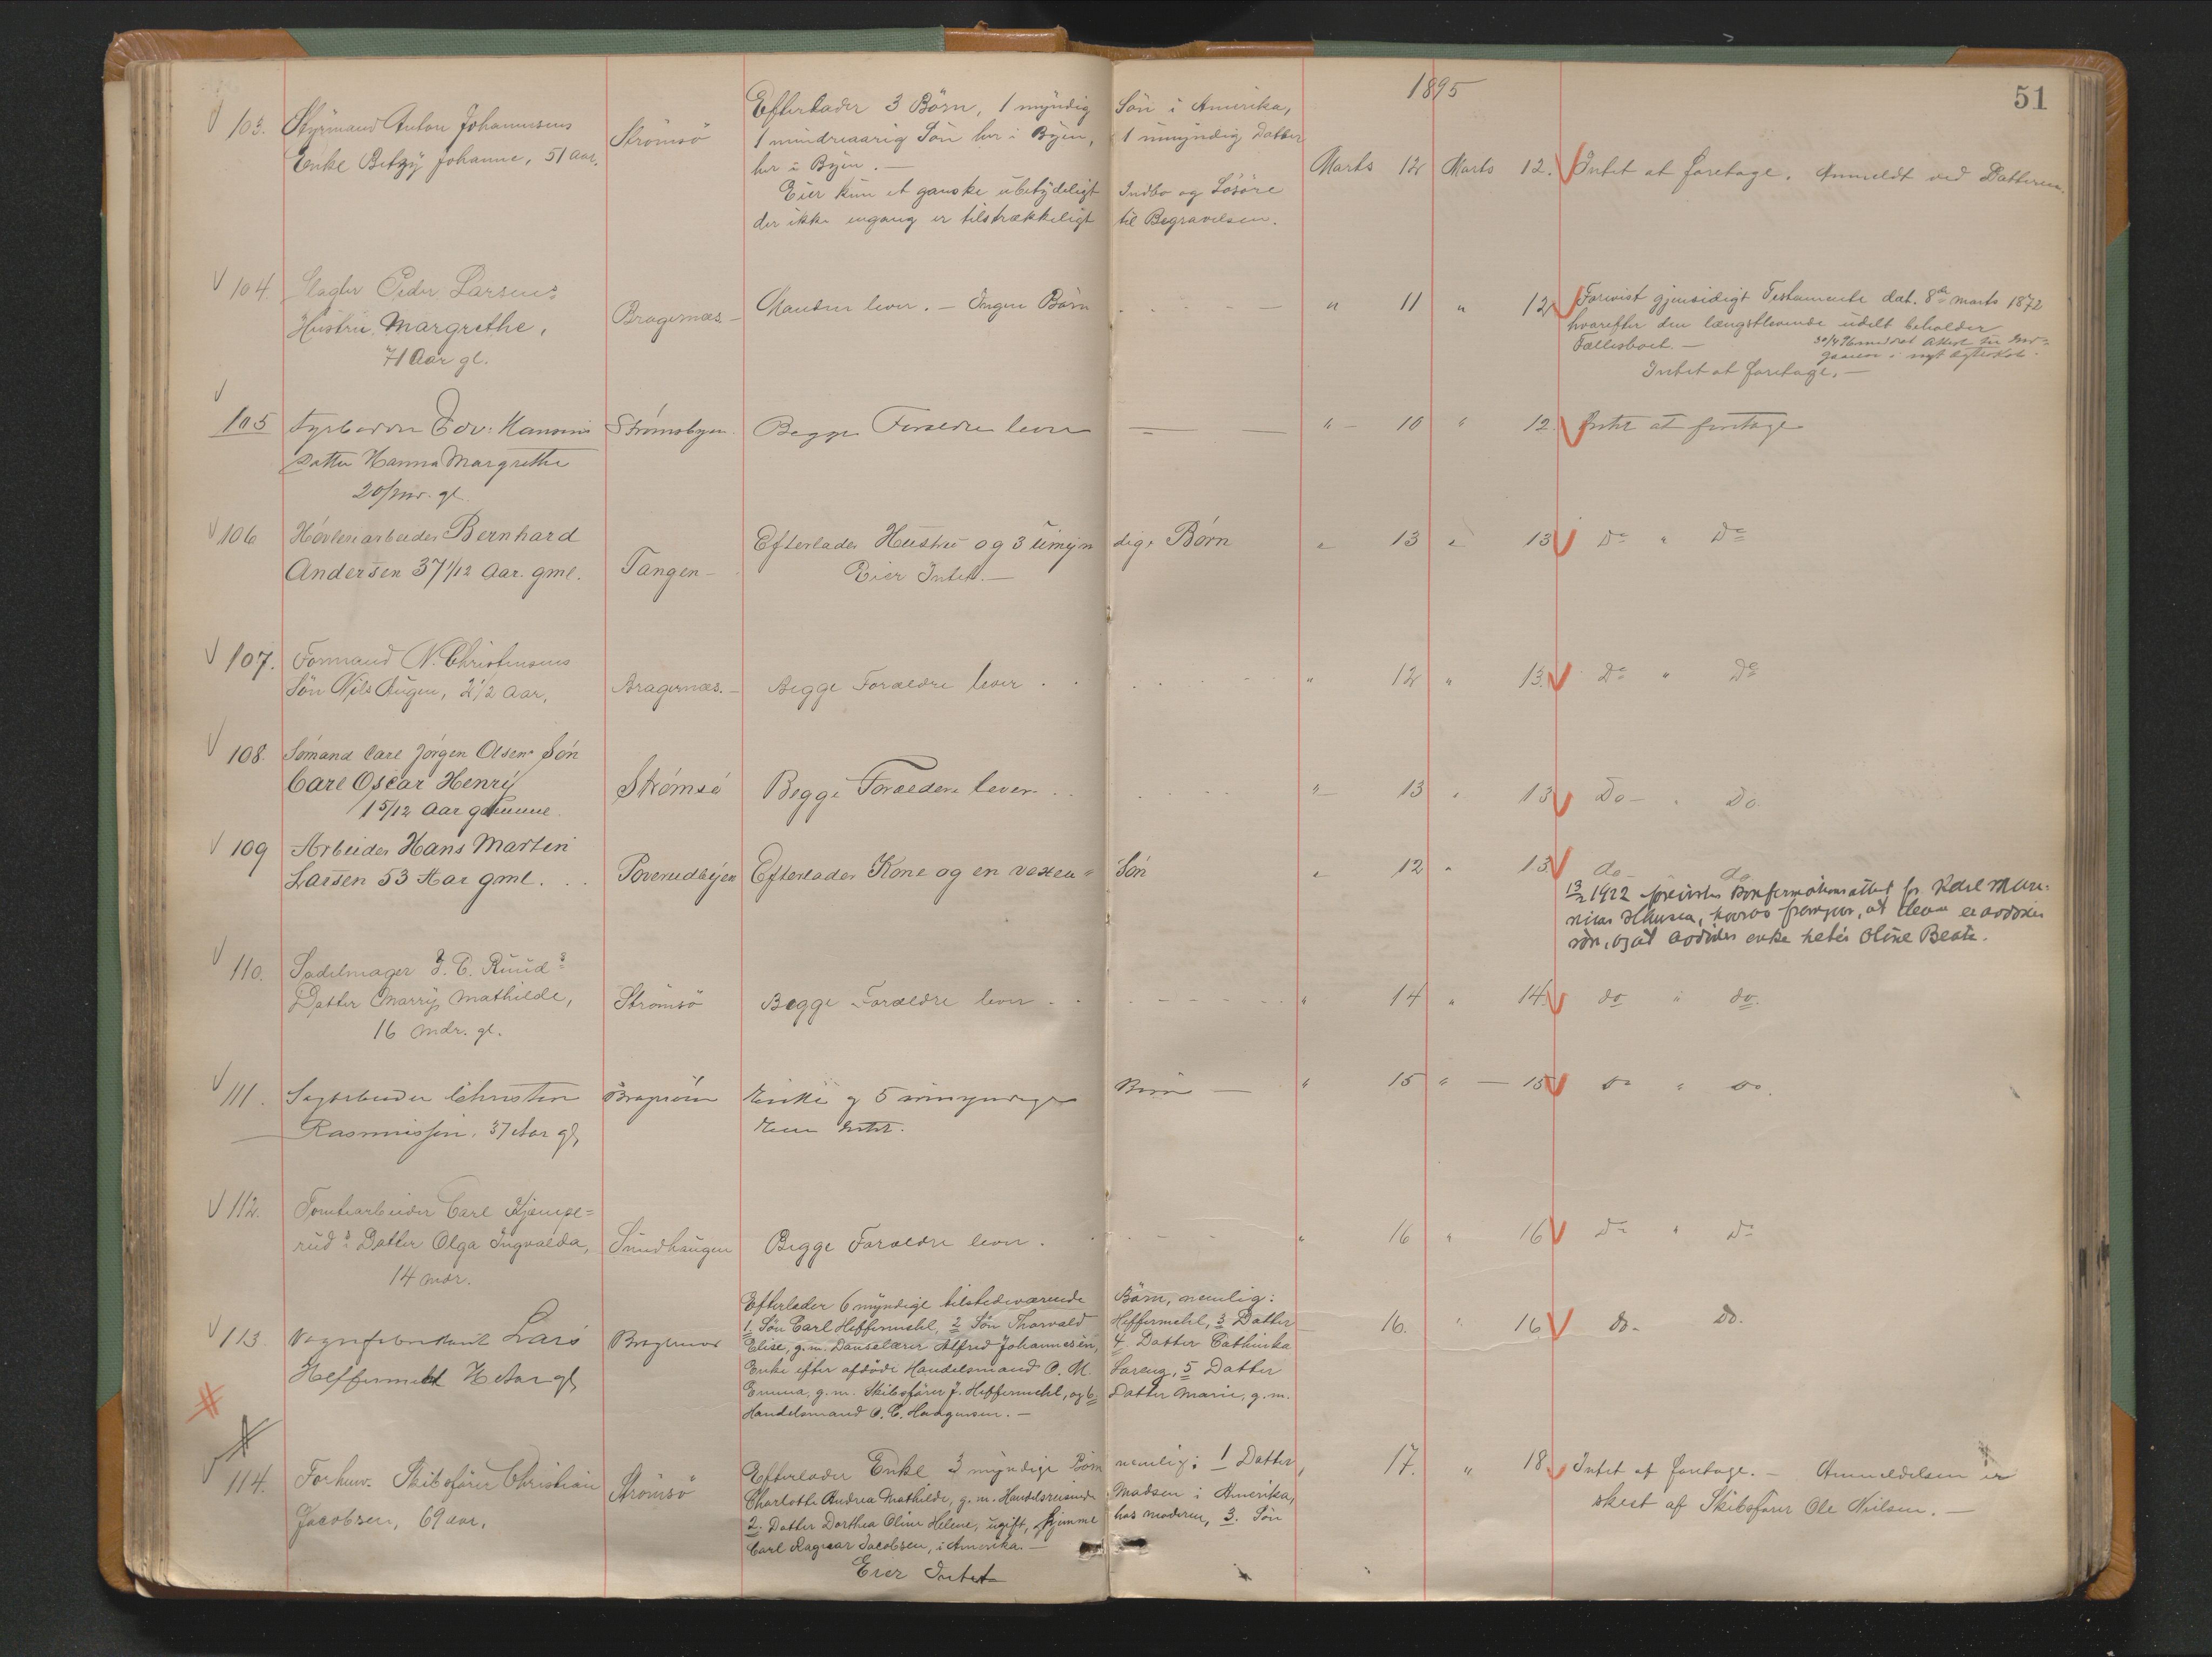 1895
51
103. Styrmand Anton Johannesens
Enke Betzy Johanne, 51 Aar.
Strömsö
Efterlader 3 Börn, 1 myndig Sön i Amerika,
1 mindreaarig Sön her i Byen, 1 umyndig Datter
her i Byen. —
Eier kun et ganske ubetydeligt Indbo og Lösöre
der ikke engang er tilstrækkeligt til Begravelsen.
Marts 12 Marts 12. Intet at foretage. Anmeldt ved Datteren.
104. Slagter Peder Larsens
Hustru Margrethe,
71 Aar gl.
Bragernæs —
Manden lever. — Ingen Börn
" 11 " 12
Forevist gjensidigt Testamente dat. 8de marts 1872
hvorefter den længstlevende udelt beholder
Fællesboet. —
Intet at foretage. —
105 Fyrböder Edv: Hansens
Datter Hanna Margrethe
20/ mdr. gl.
Strömsbyen.
Begge Forældre lever — —
" 10 " 12. Intet at foretage
106 Høvleriarbeider Bernhard
Andersen 37 1/12 Aar. gml.
Tangen —
Efterlader Hustru og 3 Umyndige Børn
Eier Intet. —
" 13 " 13 Do " Do
107. Formand N. Christensens
Sön Nils Augen, 2 1/2 Aar,
Bragernæs. —
Begge Forældre lever . .
" 12 " 13. Do " Do
108. Sømand Carl Jørgen Olsens Søn
Carl Oscar Henry
1 5/12 Aar gamme.
Strømsø
Begge Forældere lever. . .
" 13 " 13 Do — " Do.
109 Arbeider Hans Martin
Larsen 53 Aar gml. . .
Efterlader Kone og en voxen Søn
" 12 " 13 do — do
1922 forevistes Konfirmationsattest for Karl
at denne er avdødes
søn, og at avdødes enke heter Oline Beate.
110. Sadelmager J. C. Ruuds
Datter Marry Mathilde,
16 Mdr. gl.
Strömsö
Begge Forældre lever . .
" 14 " 14. do " do.
111. Sagarbeider Christen
Rasmussen, 37 Aar gl,
Enke og 5 umyndige Börn —
Eier Intet.
" 15 " — 15 do " do.
112. Tomtearbeider Carl Kjempe=
ruds Datter Olga Ingvalda,
14 mdr.
Sundhaugen
Begge Forældre lever .
" 16 " 16 Do " Do
113. Vognfabrikant Lars
Heffermehl Aar gl,
Bragernæs
Efterlader 6 myndige tilstedeværende Börn, nemlig:
1. Sön Carl Heffermehl, 2 Sön Thorvald Heffermehl, 3 Datter
Elise, g. m. Danselærer Alfred Johannesen, 4. Datter Cathinka
Enke efter afdöde Handelsmand O. M. Lorang, 5 Datter
Emma, g. m. Skibsförer J. Heffermehl, og 6 Datter Marie, g. m.
Handelsmand O. C. Haagensen. —
16. " 16 do — do.
114. Forhenv. Skibsförer Christian
Jacobsen, 69 aar.
Strömsö
Efterlader Enke 3 myndige Börn nemlig: 1 Datter
Charlotte Andrea Mathilde, g. m. Handelsreisende Madsen i Amerika,
2. Datter Dorthea Oline Helene, ugift, hjemme hos moderen, 3. Sön
Carl Ragnar Jacobsen, i Amerika. —
Eier Intet
17. " 18 Intet at foretage. — Anmeldelsen er
skeet af Skibsförer Ole Nielsen. —